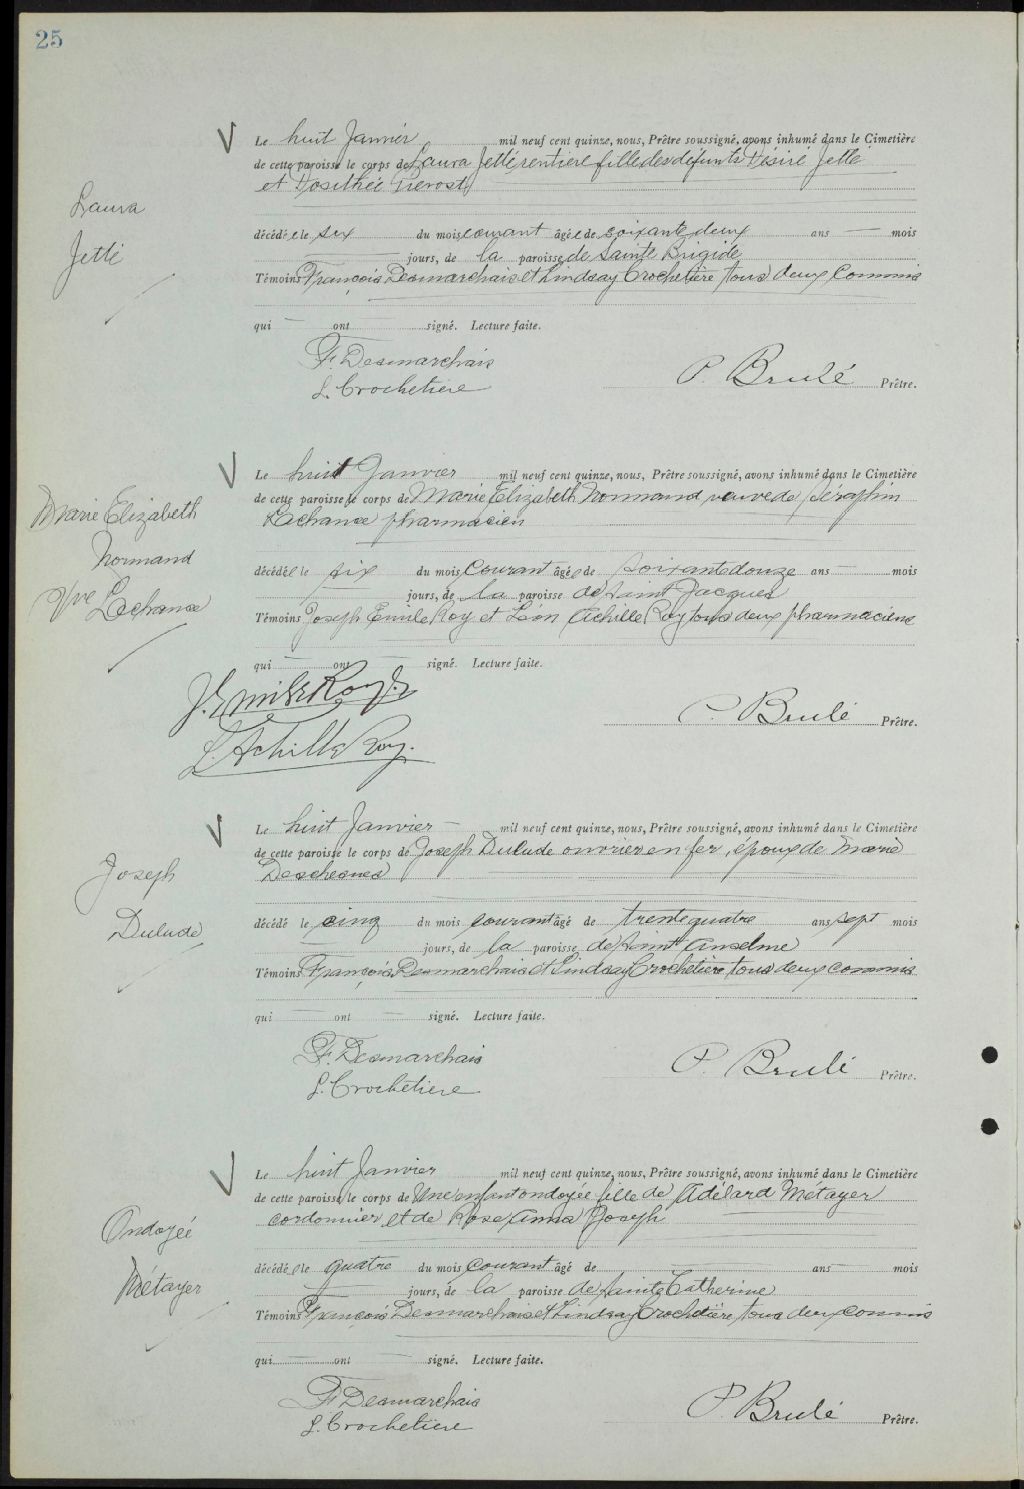 25
Laura
Jetté
Le huit Janvier mil neuf cent quinze, nous, Prêtre soussigné, avons inhumé dans le Cimetière
de cette paroisse le corps de Laura Jetté rentière fille des défunts Désiré Jetté
et Dosithée Prevost
décédée le six du mois courant âgée de soixante deux ans — mois
jours, de la paroisse de Sainte Brigide
Témoins François Desmarchais et Lindsay Crochetière tous deux Commis
qui — ont signé. Lecture faite.
F. Desmarchais
L. Crochetiere
P. Brulé Prêtre.
Marie Elizabeth
Normand
Vve Lachance
Le huit Janvier mil neuf cent quinze, nous, Prêtre soussigné, avons inhumé dans le Cimetière
de cette paroisse le corps de Marie Elizabeth Normand veuve de Séraphin
Lachance pharmacien
décédée le six du mois Courant âgée de soixante douze ans — mois
jours, de la paroisse de Saint Jacques
Témoins Joseph Emile Roy et Léon Achille Roy tous deux pharmaciens
qui — ont — signé. Lecture faite.
J. Emile Roy
L. Achille Roy.
P. Brulé Prêtre.
Joseph
Dulude
Le huit Janvier — mil neuf cent quinze, nous, Prêtre soussigné, avons inhumé dans le Cimetière
de cette paroisse le corps de Joseph Dulude ouvrier en fer, époux de Marie
Deschesnes
décédé le cinq du mois courant âgé de trente quatre ans sept mois
jours, de la paroisse de Saint Anselme
Témoins François Desmarchais et Lindsay Crochetière tous deux commis
qui — ont — signé. Lecture faite.
F. Desmarchais
L. Crochetiere
P. Brulé Prêtre.
Ondoyée
Métayer
Le huit Janvier mil neuf cent quinze, nous, Prêtre soussigné, avons inhumé dans le Cimetière
de cette paroisse le corps de Une enfant ondoyée fille de Adélard Métayer
cordonnier et de Rose Anna Joseph
décédée le quatre du mois courant âgé de — ans — mois
jours, de la paroisse de Sainte Catherine
Témoins François Desmarchais et Lindsay Crochetière tous deux commis
qui ont — signé. Lecture faite.
F. Desmarchais
L. Crochetiere
P. Brulé Prêtre.